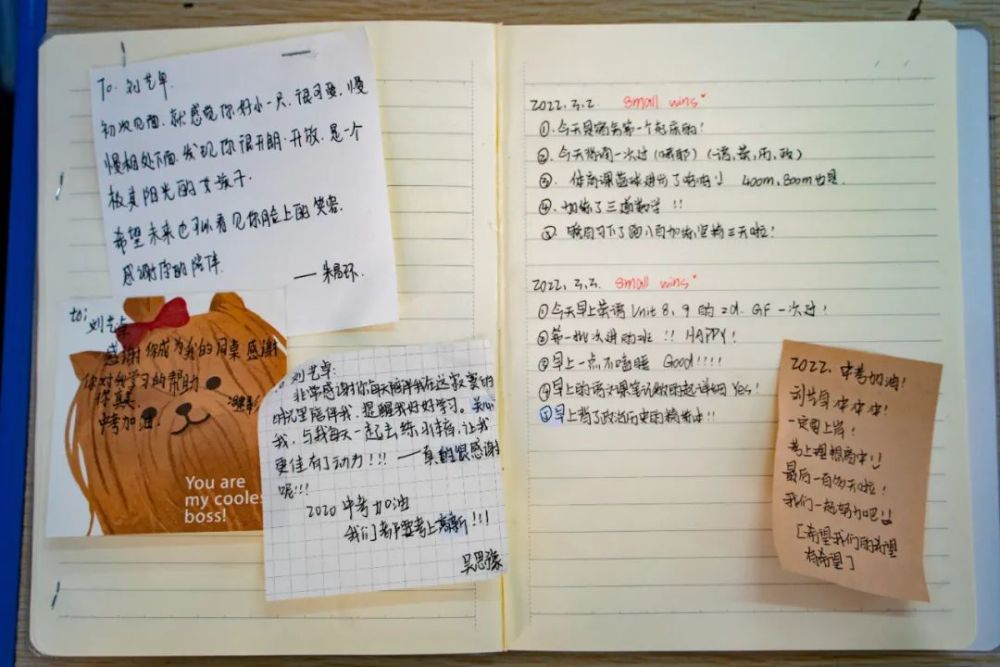 To. 刘艺卓.
初次见面,就感觉你好小一只,很可爱,慢
慢相处下面,发现你很开朗开放,是一个
极其阳光的女孩子.
希望未来也可以看见你脸上的笑容.
感谢你的陪伴
——朱
to:
刘艺卓
感谢你成为我的同桌 感谢
你对我学习的帮助
你真
中考加油!
You are
my cooles
boss!
刘艺卓:
非常感谢你每天陪伴我在这最重要的
时光里陪伴我,提醒我好好学习。
我,与我每天一起去练小 让我
更佳有了动力!!! ——真的很感谢
呢!!!
2020中考加油
我们都要考上高新!!!
吴思
2022.3.2. small wins
①.今天是宿舍第一个起床的!
②.今天背 一次过(哦耶)(语,英,历,政)
③. 体育课篮球进步了 400m,800m也是
④. 了三道数学!!
⑤. 晚自习下了跑八百 坚持三天啦!
2022.3.3. small wins
①今天早上英语 Unit 8、9 的 2d. GF 一次过!
②第一批次进 班 !! HAPPY!
③早上一点不瞌睡 Good!!!!
④早上的语文课笔记做的超详细 Yes!
⑤早上背了政治历史的 !!
2022. 中考加油!
刘艺卓
一定要上岸!
考上理想高中!!
最后一百 天啦!
我们一起努力吧!!
[希望我们的希望
有希望]